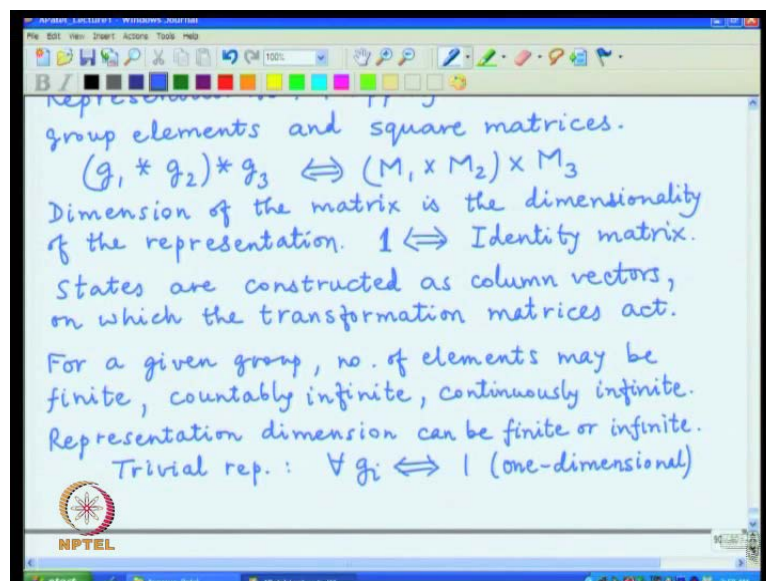 NPatel_Lecture1 - Windows Journal
File Edit View Insert Actions Tools Help
100%
B I
group elements and square matrices.
(g₁ * g₂) * g₃ ⇔ (M₁ × M₂) × M₃
Dimension of the matrix is the dimensionality
of the representation. 1 ⇔ Identity matrix.
States are constructed as column vectors,
on which the transformation matrices act.
For a given group, no. of elements may be
finite, countably infinite, continuously infinite.
Representation dimension can be finite or infinite.
Trivial rep. : ∀ gᵢ ⇔ 1 (one-dimensional)
NPTEL